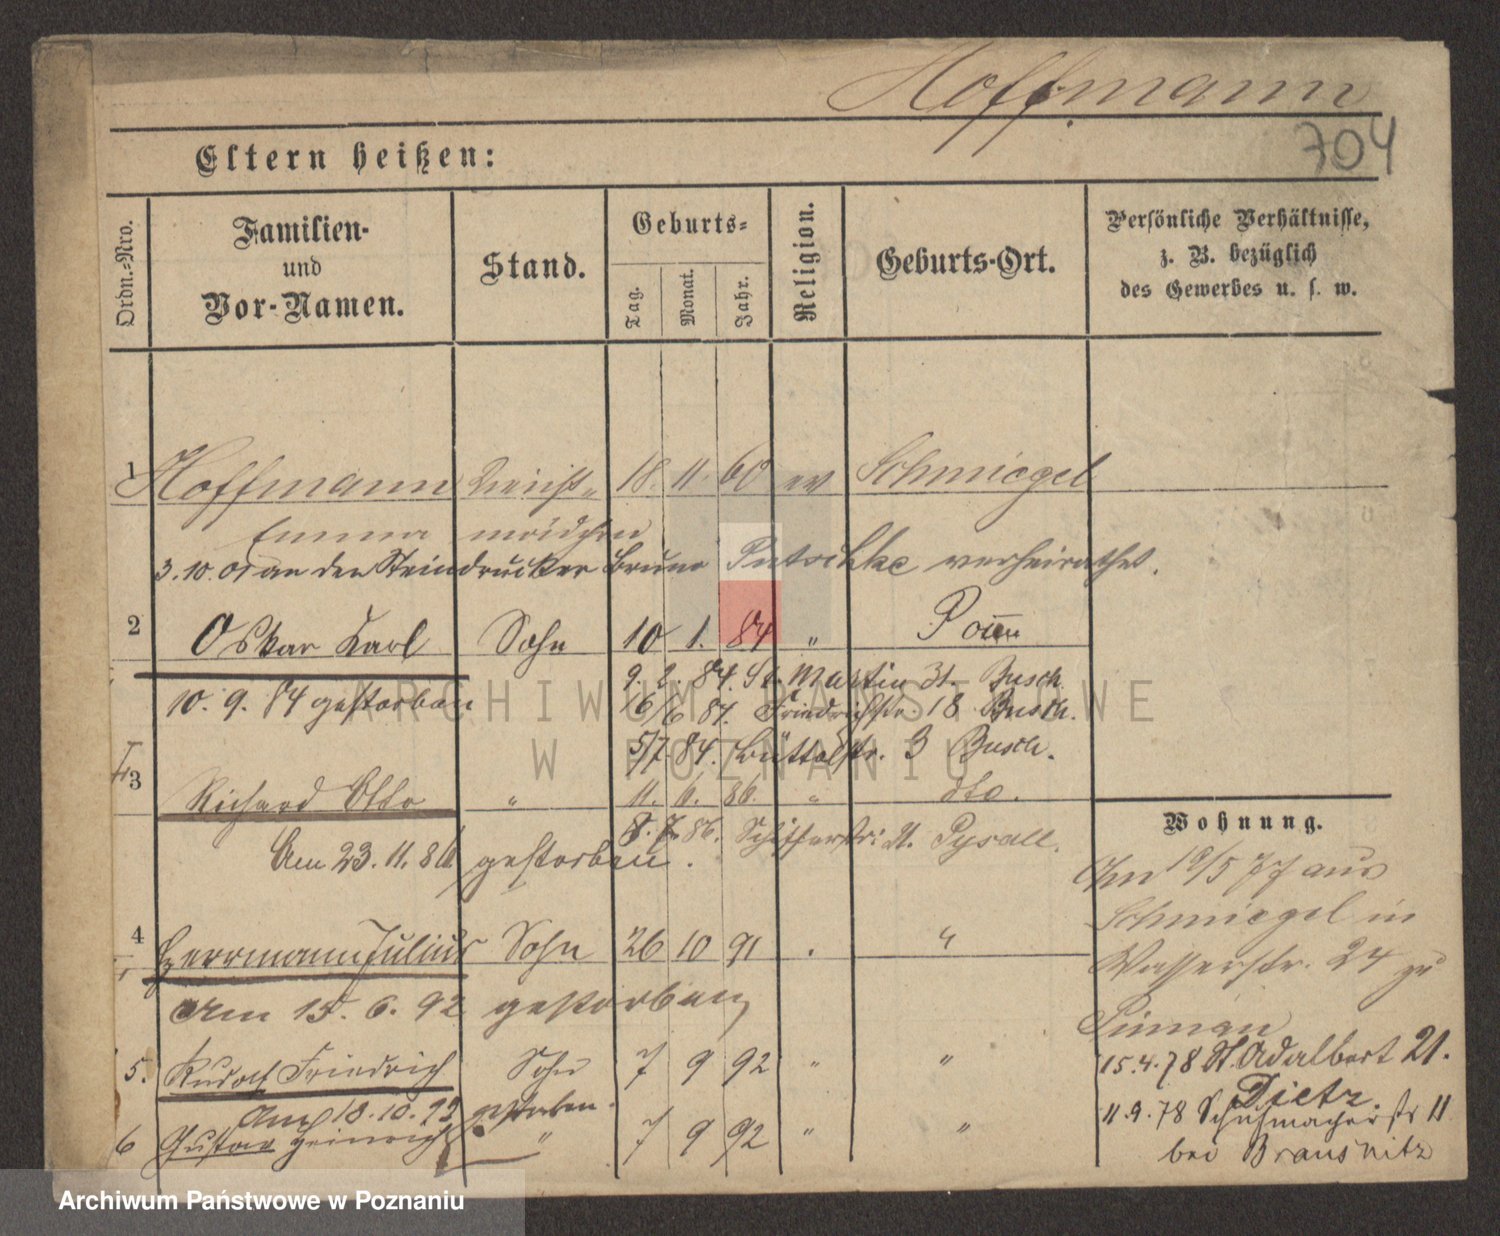 Hoffmann
704
Eltern heißen:
Ordn.-Nro.
Familien-
und
Vor-Namen.
Stand.
Geburts-
Tag.
Monat.
Jahr.
Religion.
Geburts-Ort.
Persönliche Verhältnisse,
z. B. bezüglich
des Gewerbes u. s. w.
1 Hoffmann Dienst- 18. 11. 60 ev Schmiegel
Emma mädchen
3.10.01 an den Steindrucker Bruno verheirathet.
2 Oskar Karl Sohn 10 1. 84 " Posen
9. 2. 84. St. Martin 31. Busch
10. 9. 84 gestorben
16/6 84. Friedrichstr. 18 Busch.
5/7. 84. Büttelstr. 3 Busch.
3 Richard Otto " 11. 6. 86. " dto.
8. 7. 86. Schifferstr. 21.
Am 23. 11. 86 gestorben.
4 Herrmann Julius Sohn 26 10 91 . "
Am 15. 6. 92 gestorben
5. Rudolf Friedrich Sohn 7 9 92 " "
Am 18. 10. 92 gestorben.
6 Gustav Heinrich " 7 9 92 " "
Wohnung.
Am 19/5 77 aus
Schmiegel in
Wasserstr. 24 zu
15.4.78 St. Adalbert 21.
Dietz.
11.9.78 Schuhmacherstr 11
bei Brausnitz
ARCHIWUM PAŃSTWOWE
W POZNANIU
Archiwum Państwowe w Poznaniu